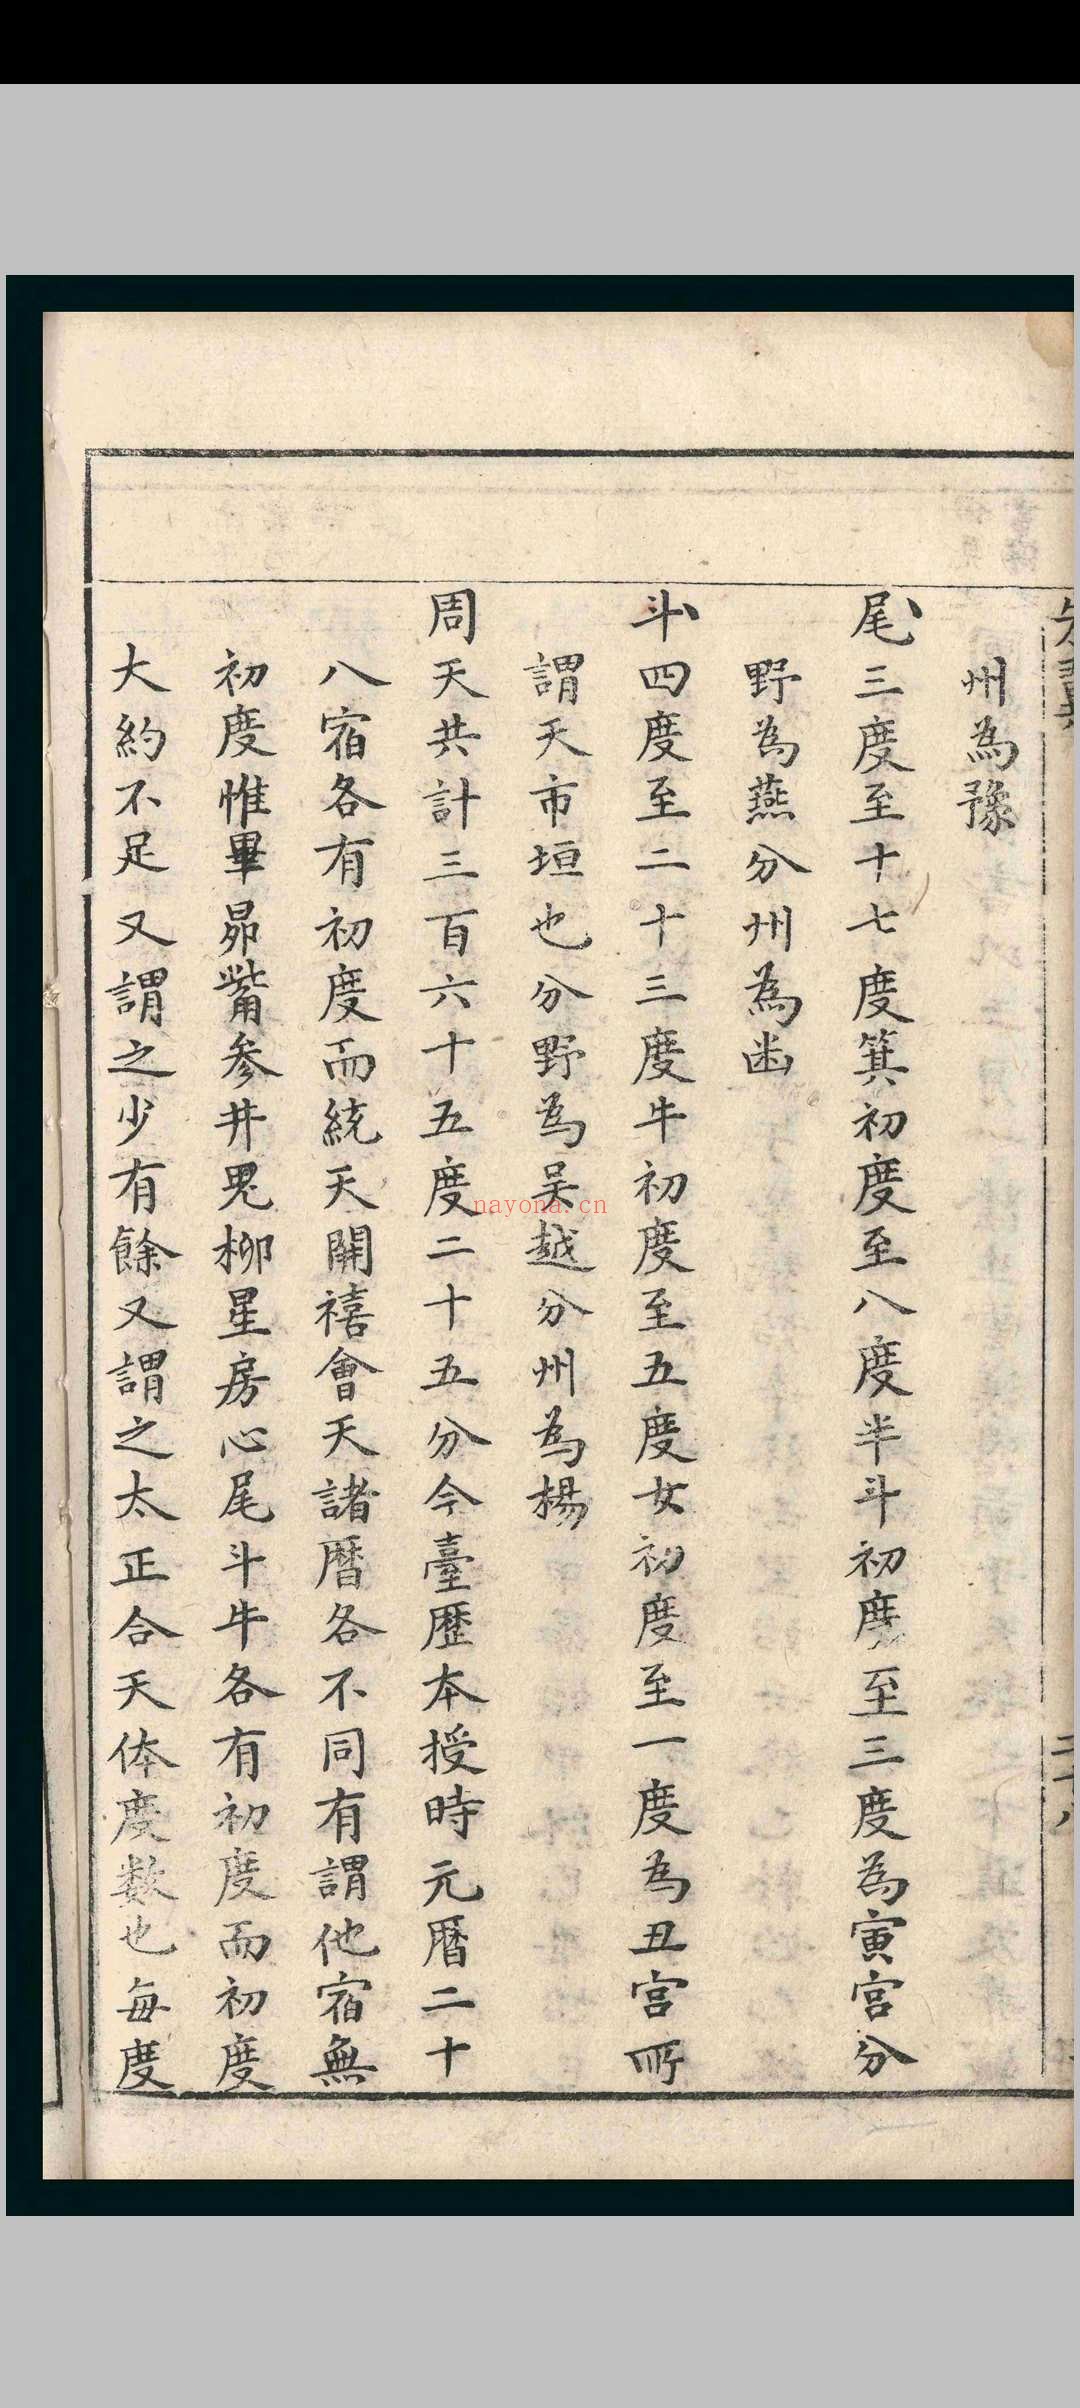 州為豫
尾三度至十七度箕初度至八度半斗初度至三度為寅宮分
野為燕分州為幽
斗四度至二十三度牛初度至五度女初度至一度為丑宮所
謂天市垣也分野為吴越分州為楊
周天共計三百六十五度二十五分今臺歷本授時元曆二十
八宿各有初度而統天開禧會天諸曆各不同有謂他宿無
初度惟畢昴觜參井鬼柳星房心尾斗牛各有初度而初度
大約不足又謂之少有餘又謂之太正合天体度数也每度
二十八
nayona.cn